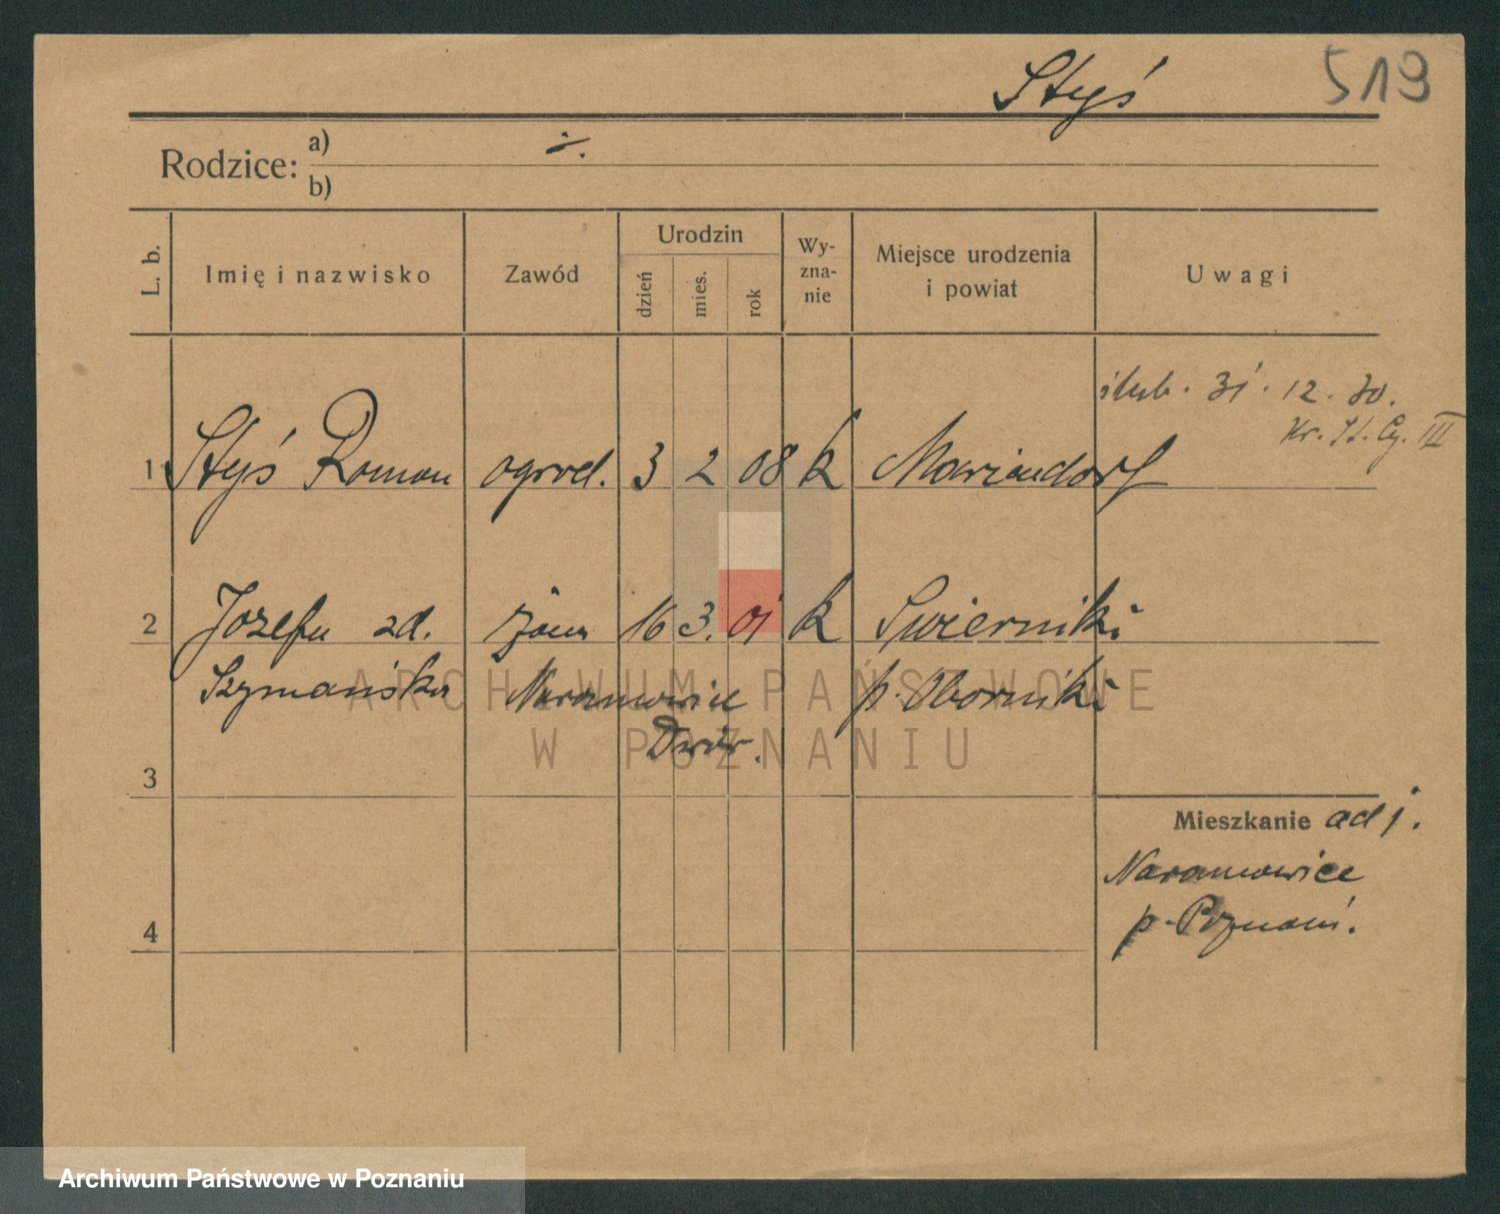 Styś 519
Rodzice: a) ÷.
b)
L. b. Imię i nazwisko Zawód Urodzin dzień mies. rok Wy-zna-nie Miejsce urodzenia i powiat Uwagi
ślub. 31. 12. 30.
Kr. St. Cy. III
1 Styś Roman ogrod. 3 2 08 k Mariendorf
2 Józefa zd. żona 16 3. 01 k Świerniki
Szymańska Naramowice p. Oborniki
Dwór.
3
Mieszkanie adj.
Naramowice
4 p. Poznań.
ARCHIWUM PAŃSTWOWE
W POZNANIU
Archiwum Państwowe w Poznaniu